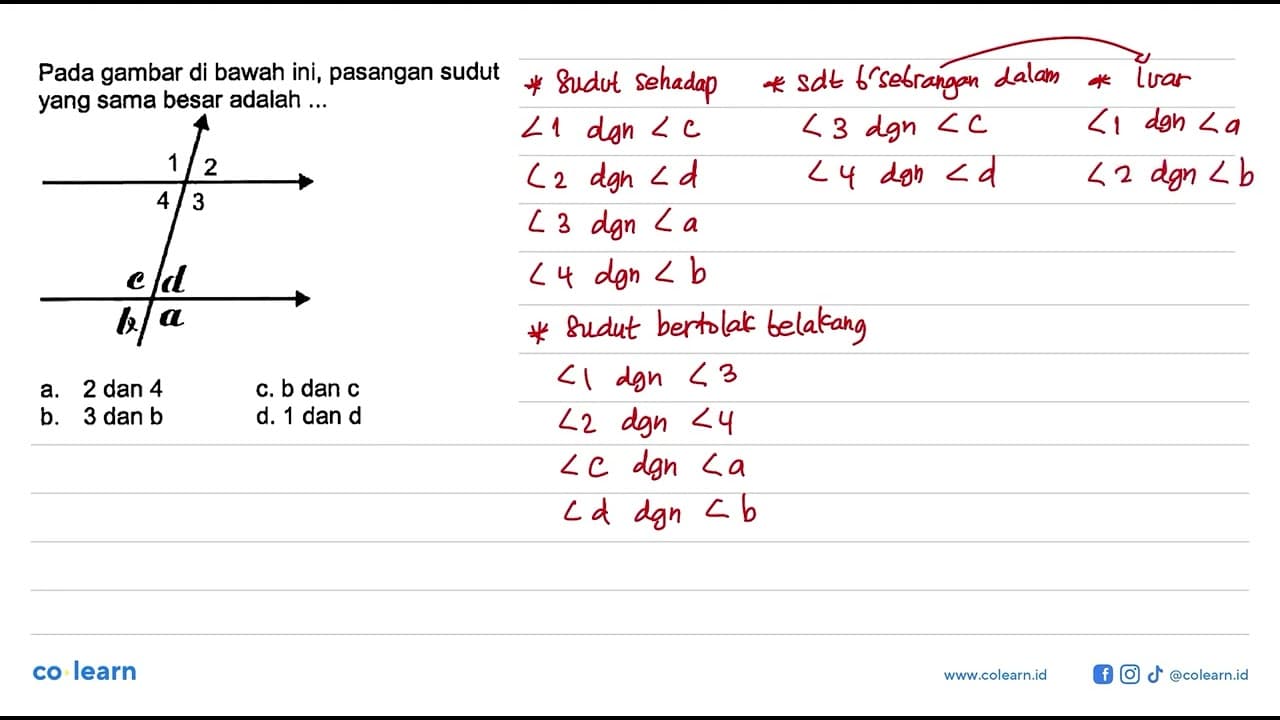 Pada gambar di bawah ini, pasangan sudut
yang sama besar adalah ...
1 2
4 3
c d
b a
a. 2 dan 4 c. b dan c
b. 3 dan b d. 1 dan d
* Sudut sehadap
∠1 dgn ∠c
∠2 dgn ∠d
∠3 dgn ∠a
∠4 dgn ∠b
* sdt b'sebrangan dalam
∠3 dgn ∠c
∠4 dgn ∠d
* luar
∠1 dgn ∠a
∠2 dgn ∠b
* Sudut bertolak belakang
∠1 dgn ∠3
∠2 dgn ∠4
∠c dgn ∠a
∠d dgn ∠b
co learn
www.colearn.id
@colearn.id